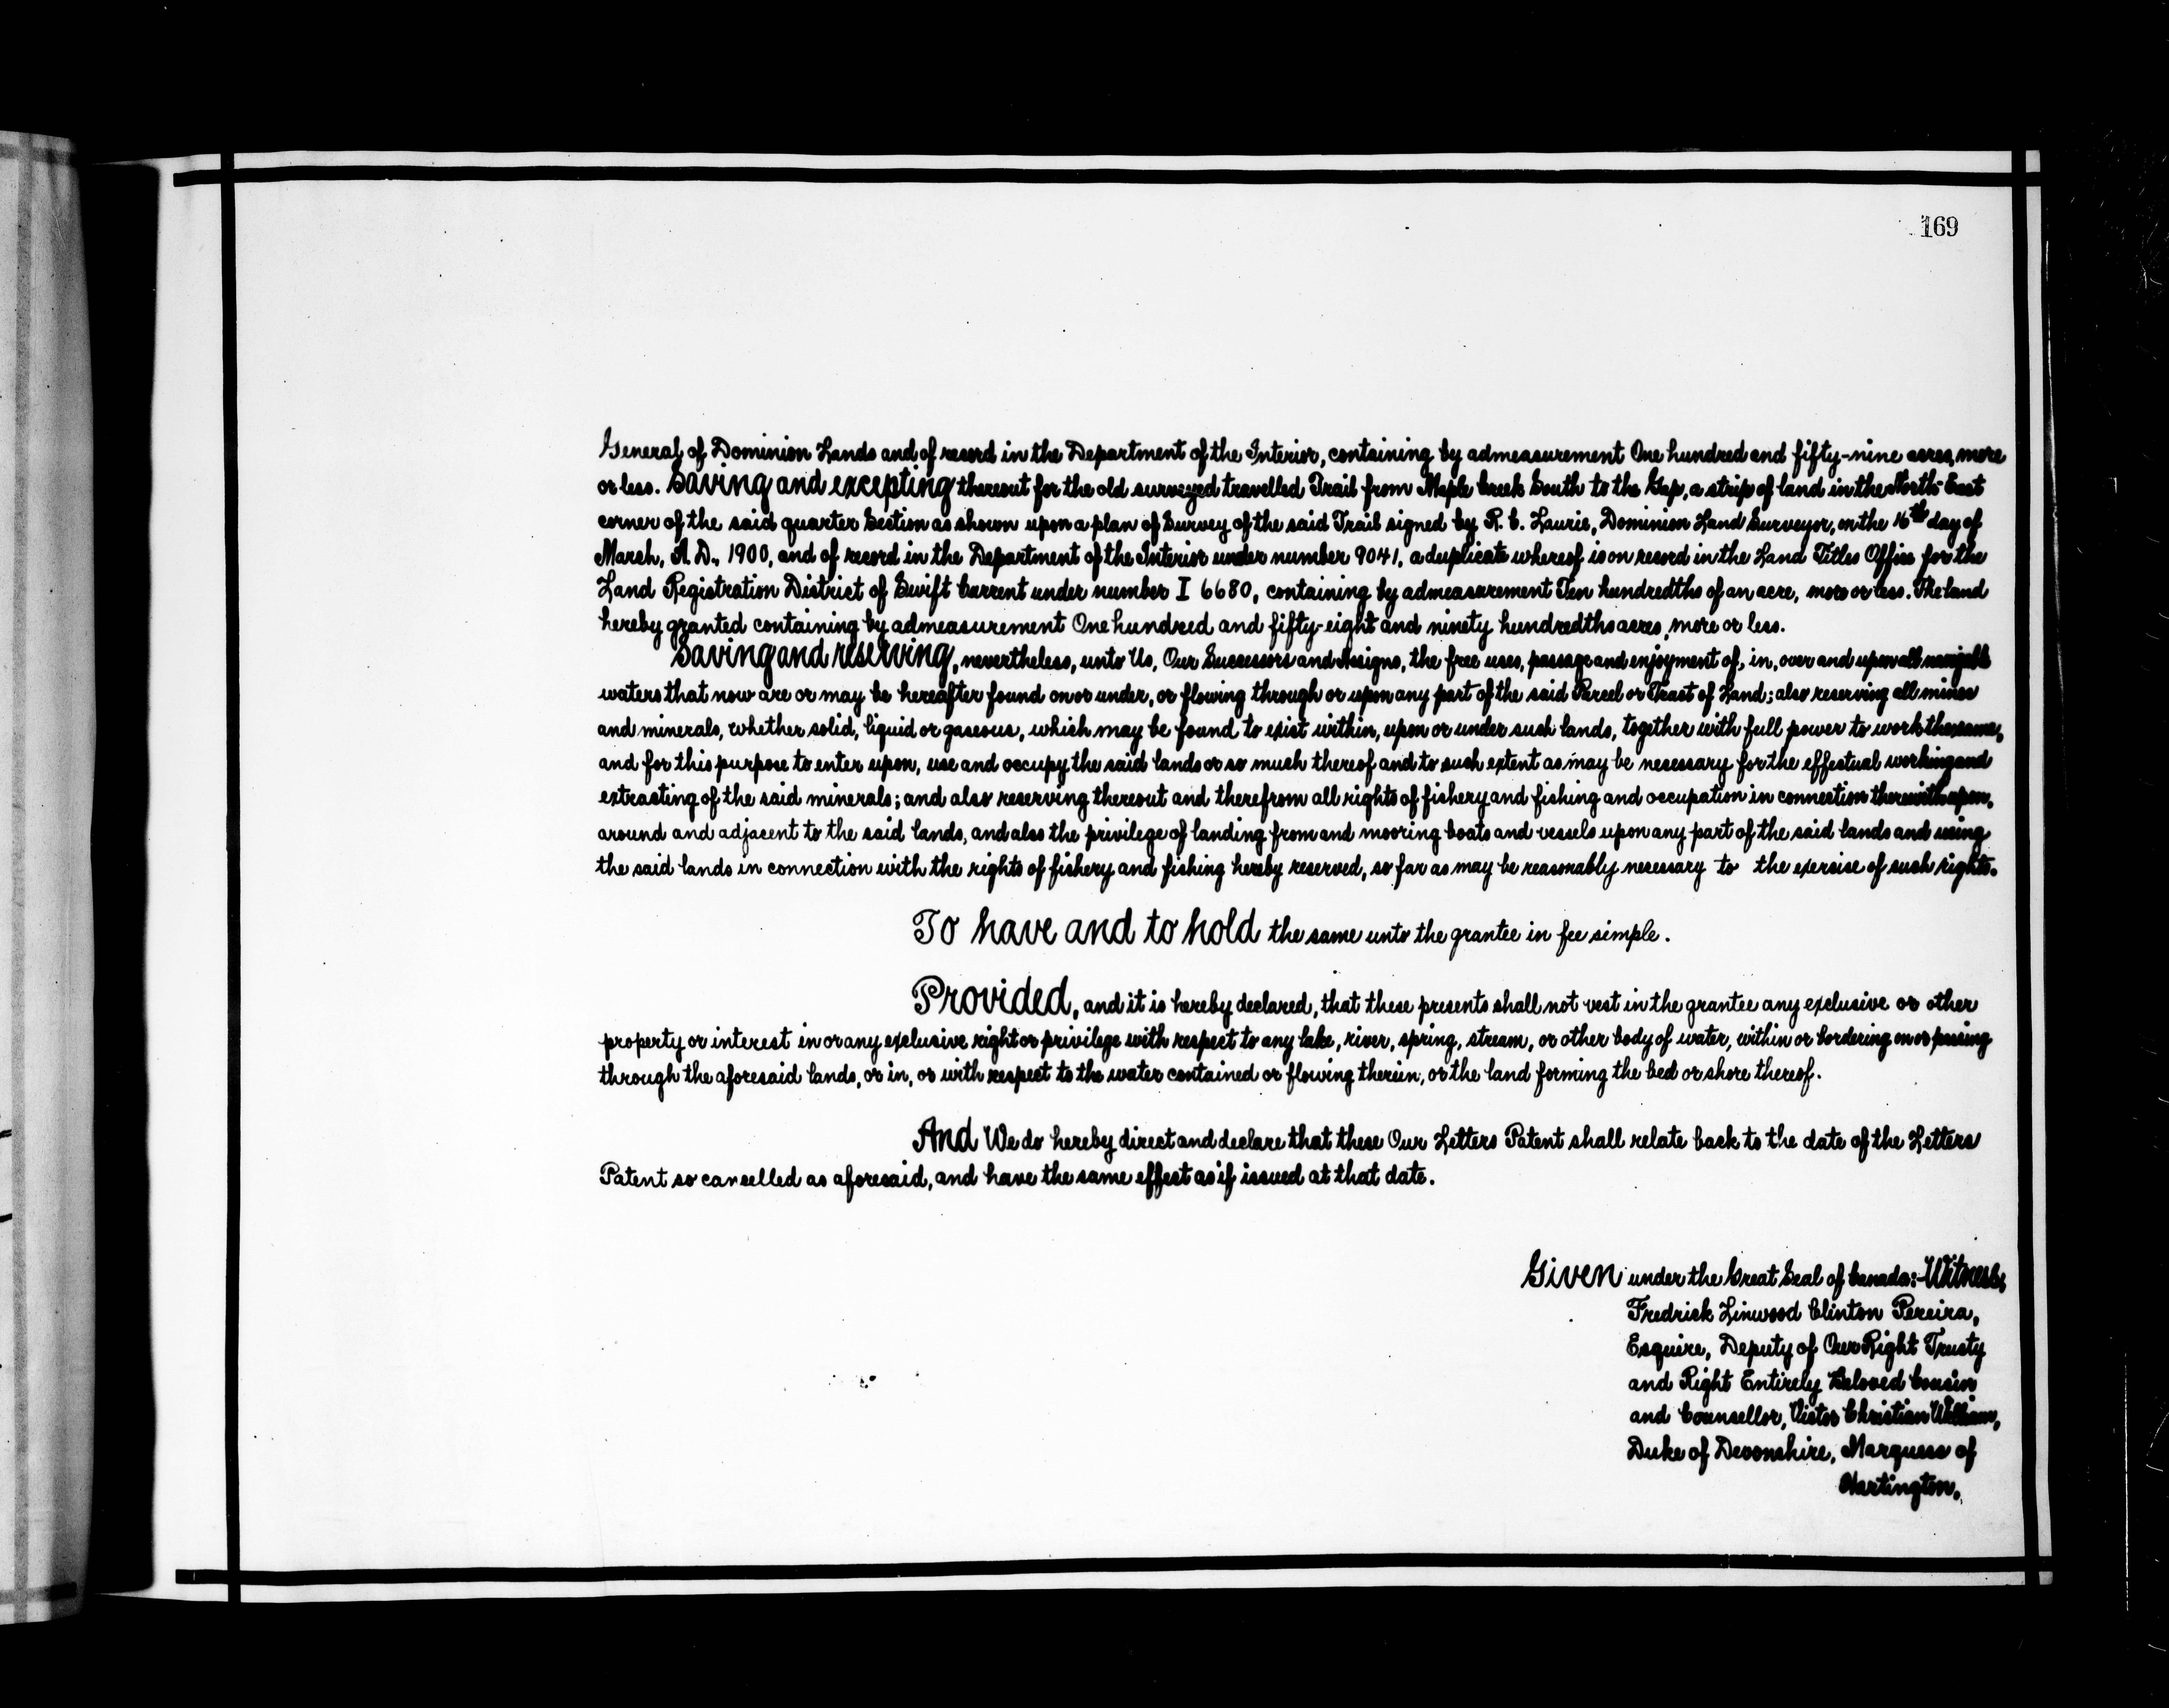 169
General of Dominion Lands and of record in the Department of the Interior, containing by admeasurement One hundred and fifty-nine acres, more
or less. Saving and excepting thereout for the old surveyed travelled Trail from Maple Creek South to the Gap, a strip of land in the North-East
corner of the said quarter Section as shown upon a plan of Survey of the said Trail signed by R. C. Laurie, Dominion Land Surveyor, on the 16th day of
March, A. D., 1900, and of record in the Department of the Interior under number 9041, a duplicate whereof is on record in the Land Titles Office for the
Land Registration District of Swift Current under number I 6680, containing by admeasurement Ten hundredths of an acre, more or less. The land
hereby granted containing by admeasurement One hundred and fifty-eight and ninety hundredths acres, more or less.
Saving and reserving, nevertheless, unto Us, Our Successors and Assigns, the free uses, passage and enjoyment of, in, over and upon all navigable
waters that now are or may be hereafter found on or under, or flowing through or upon any part of the said Parcel or Tract of Land; also reserving all mines
and minerals, whether solid, liquid or gaseous, which may be found to exist within, upon or under such lands, together with full power to work the same,
and for this purpose to enter upon, use and occupy the said lands or so much thereof and to such extent as may be necessary for the effectual working and
extracting of the said minerals; and also reserving thereout and therefrom all rights of fishery and fishing and occupation in connection therewith upon,
around and adjacent to the said lands, and also the privilege of landing from and mooring boats and vessels upon any part of the said lands and using
the said lands in connection with the rights of fishery and fishing hereby reserved, so far as may be reasonably necessary to the exercise of such rights.
To have and to hold the same unto the grantee in fee simple.
Provided, and it is hereby declared, that these presents shall not vest in the grantee any exclusive or other
property or interest in or any exclusive right or privilege with respect to any lake, river, spring, stream, or other body of water, within or bordering on or passing
through the aforesaid lands, or in, or with respect to the water contained or flowing therein, or the land forming the bed or shore thereof.
And We do hereby direct and declare that these Our Letters Patent shall relate back to the date of the Letters
Patent so cancelled as aforesaid, and have the same effect as if issued at that date.
Given under the Great Seal of Canada:- Witness,
Fredrick Linwood Clinton Pereira,
Esquire, Deputy of Our Right Trusty
and Right Entirely Beloved Cousin
and Counsellor, Victor Christian William,
Duke of Devonshire, Marquess of
Hartington,